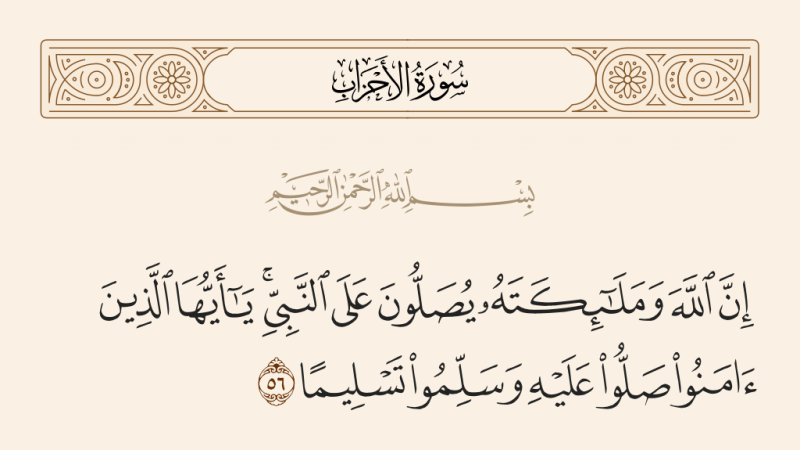 سُورَةُ الأَحْزَابِ
بِسْمِ ٱللَّهِ ٱلرَّحْمَٰنِ ٱلرَّحِيمِ
إِنَّ ٱللَّهَ وَمَلَـٰٓئِكَتَهُۥ يُصَلُّونَ عَلَى ٱلنَّبِيِّ ۚ يَـٰٓأَيُّهَا ٱلَّذِينَ
ءَامَنُوا۟ صَلُّوا۟ عَلَيْهِ وَسَلِّمُوا۟ تَسْلِيمًا ٥٦